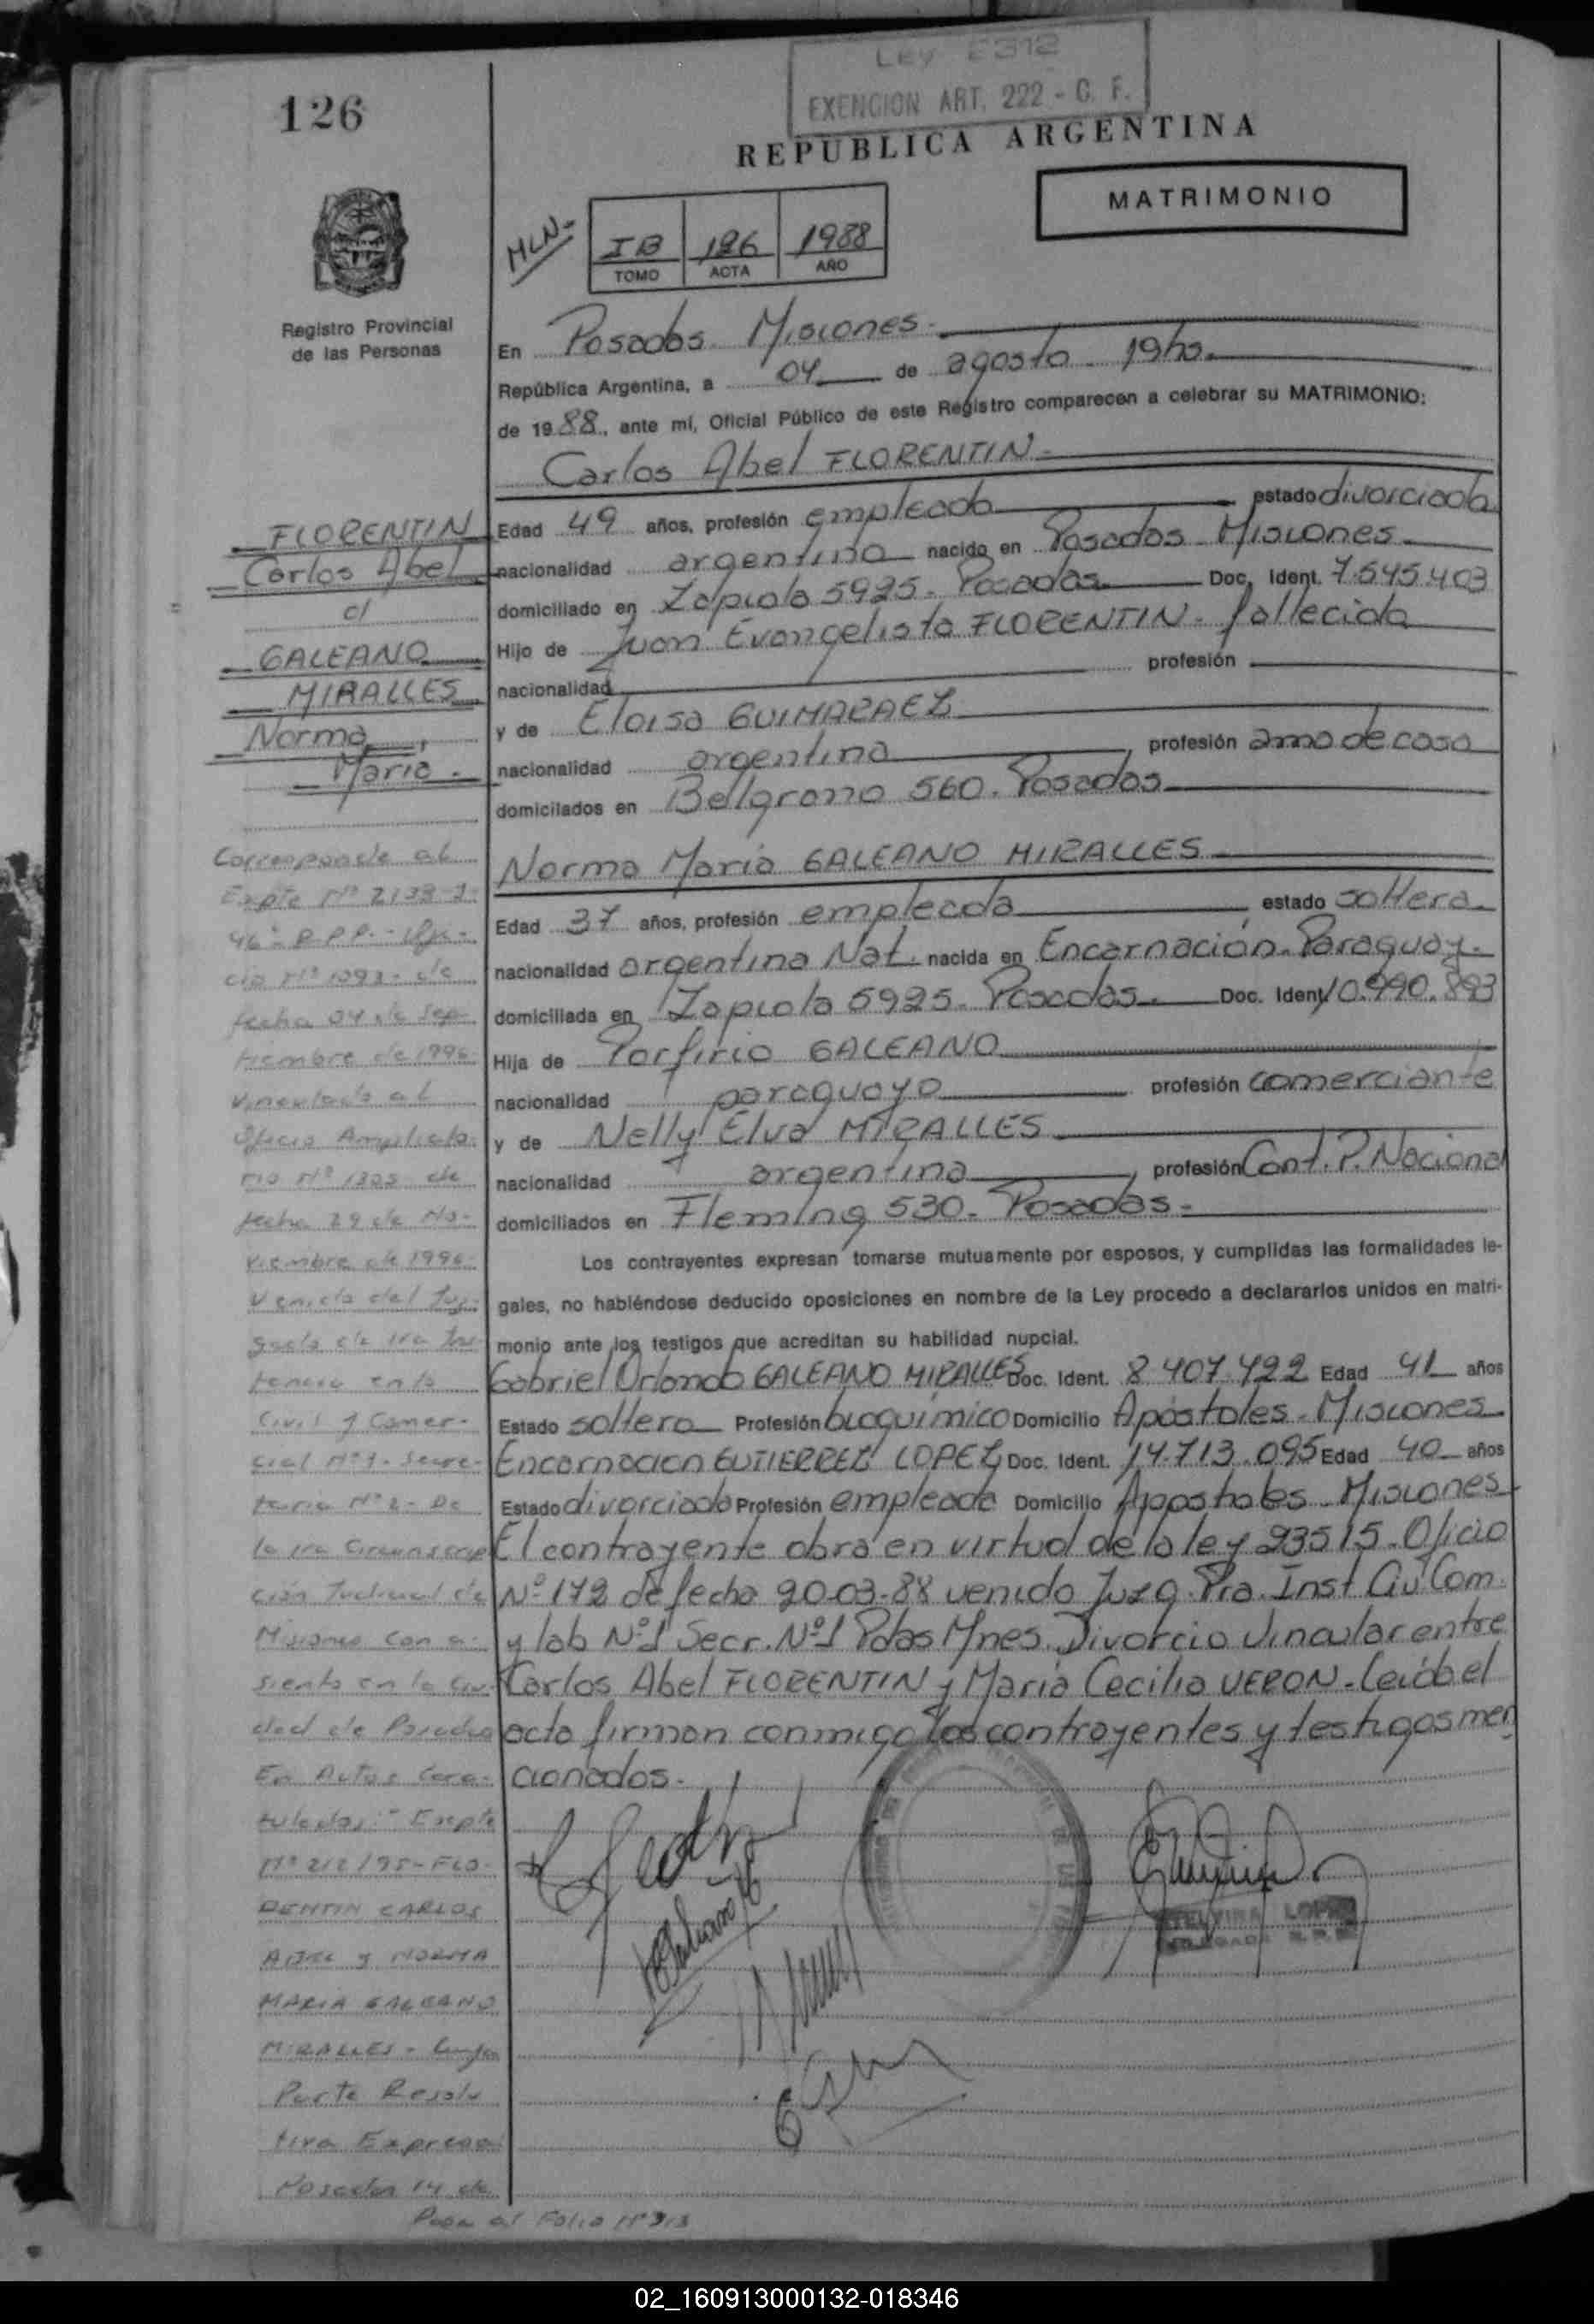 Ley 2312
EXENCION ART. 222 - C. F.
126
REPUBLICA ARGENTINA
MATRIMONIO
MLN-
IB 126 1988
TOMO ACTA AÑO
Registro Provincial
de las Personas
En Posadas Misiones.
República Argentina, a 04 de agosto 19hs.
de 1988, ante mí, Oficial Público de este Registro comparecen a celebrar su MATRIMONIO:
Carlos Abel FLORENTIN.
Edad 49 años, profesión empleado estado divorciado
nacionalidad argentino nacido en Posadas Misiones
domiciliado en Zapiola 5925. Posadas Doc. Ident. 7.545.403
Hijo de Juan Evangelista FLORENTIN. fallecido
nacionalidad profesión
y de Eloisa GUIMARAEZ
nacionalidad argentina profesión ama de casa
domicilados en Belgrano 560. Posadas
Norma María GALEANO MIRALLES
Edad 37 años, profesión empleada estado soltera.
nacionalidad argentina Nat. nacida en Encarnación. Paraguay.
domiciliada en Zapiola 5925. Posadas. Doc. Ident. 10.990.893
Hija de Porfirio GALEANO
nacionalidad paraguayo profesión comerciante
y de Nelly Elva MIRALLES
nacionalidad argentina profesión Cont. P. Nacional
domiciliados en Fleming 530. Posadas.
Los contrayentes expresan tomarse mutuamente por esposos, y cumplidas las formalidades le-
gales, no habiéndose deducido oposiciones en nombre de la Ley procedo a declararlos unidos en matri-
monio ante los testigos que acreditan su habilidad nupcial.
Gabriel Orlando GALEANO MIRALLES Doc. Ident. 8.407.422 Edad 41 años
Estado soltero Profesión bioquímico Domicilio Apóstoles. Misiones
Encarnación GUTIERREZ LOPEZ Doc. Ident. 14.713.095 Edad 40 años
Estado divorciada Profesión empleada Domicilio Apóstoles. Misiones
El contrayente obra en virtud de la ley 23515. Oficio
Nº 172 de fecha 20-03-88 venido Juzg. Pra. Inst. Civ. Com.
y lab Nº1 Secr. Nº1 Pdas Mnes. Divorcio Vincular entre
Carlos Abel FLORENTIN y María Cecilia VERON. Leída el
acta firman conmigo los contrayentes y testigos men
cionados.
FLORENTIN
Carlos Abel
c/
GALEANO
MIRALLES
Norma
María.
Corresponde al
Expte Nº 2139-J-
96- R.P.P. - Ofi-
cio Nº 1093- de
fecha 04 de Sep-
tiembre de 1996-
vinculado al
Oficio Ampliato-
rio Nº 1325 de
fecha 29 de No-
viembre de 1996-
Venido del Juz-
gado de 1ra Ins-
tancia en lo
Civil y Comer-
cial Nº 1- Secre-
taria Nº 2- De
la 1ra Circunscrip
ción Judicial de
Misiones con a-
siento en la Ciu-
dad de Posadas
En Autos Cara-
tulados: "Expte
Nº 212/95-FLO-
RENTIN CARLOS
ABEL y NORMA
MARIA GALEANO
MIRALLES - Cuya
Parte Resolu
tiva Expresa
Posadas 14 de
Pasa al Folio Nº 313
TELVINA LOPEZ
DELEGADA R.P.P.
02_160913000132-018346